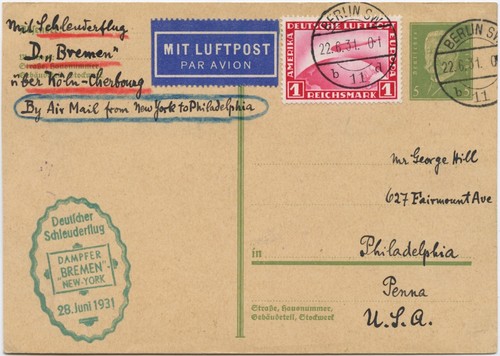 Mit Schleuderflug
D. „Bremen“
über Köln-Cherbourg
By Air Mail from New York to Philadelphia
Straße, Hausnummer,
MIT LUFTPOST
PAR AVION
AMERIKA
DEUTSCHE LUFTPOST
EUROPA
1 REICHSMARK 1
BERLIN SW
22.6.31. 0-1
b 11 a
BERLIN SW
22.6.31. 0-1
b 11
5
Mr George Hill
627 Fairmount Ave
in Philadelphia
Penna
U.S.A.
Straße, Hausnummer,
Gebäudeteil, Stockwerk
Deutscher
Schleuderflug
DAMPFER
„BREMEN“-
NEW-YORK
28. Juni 1931